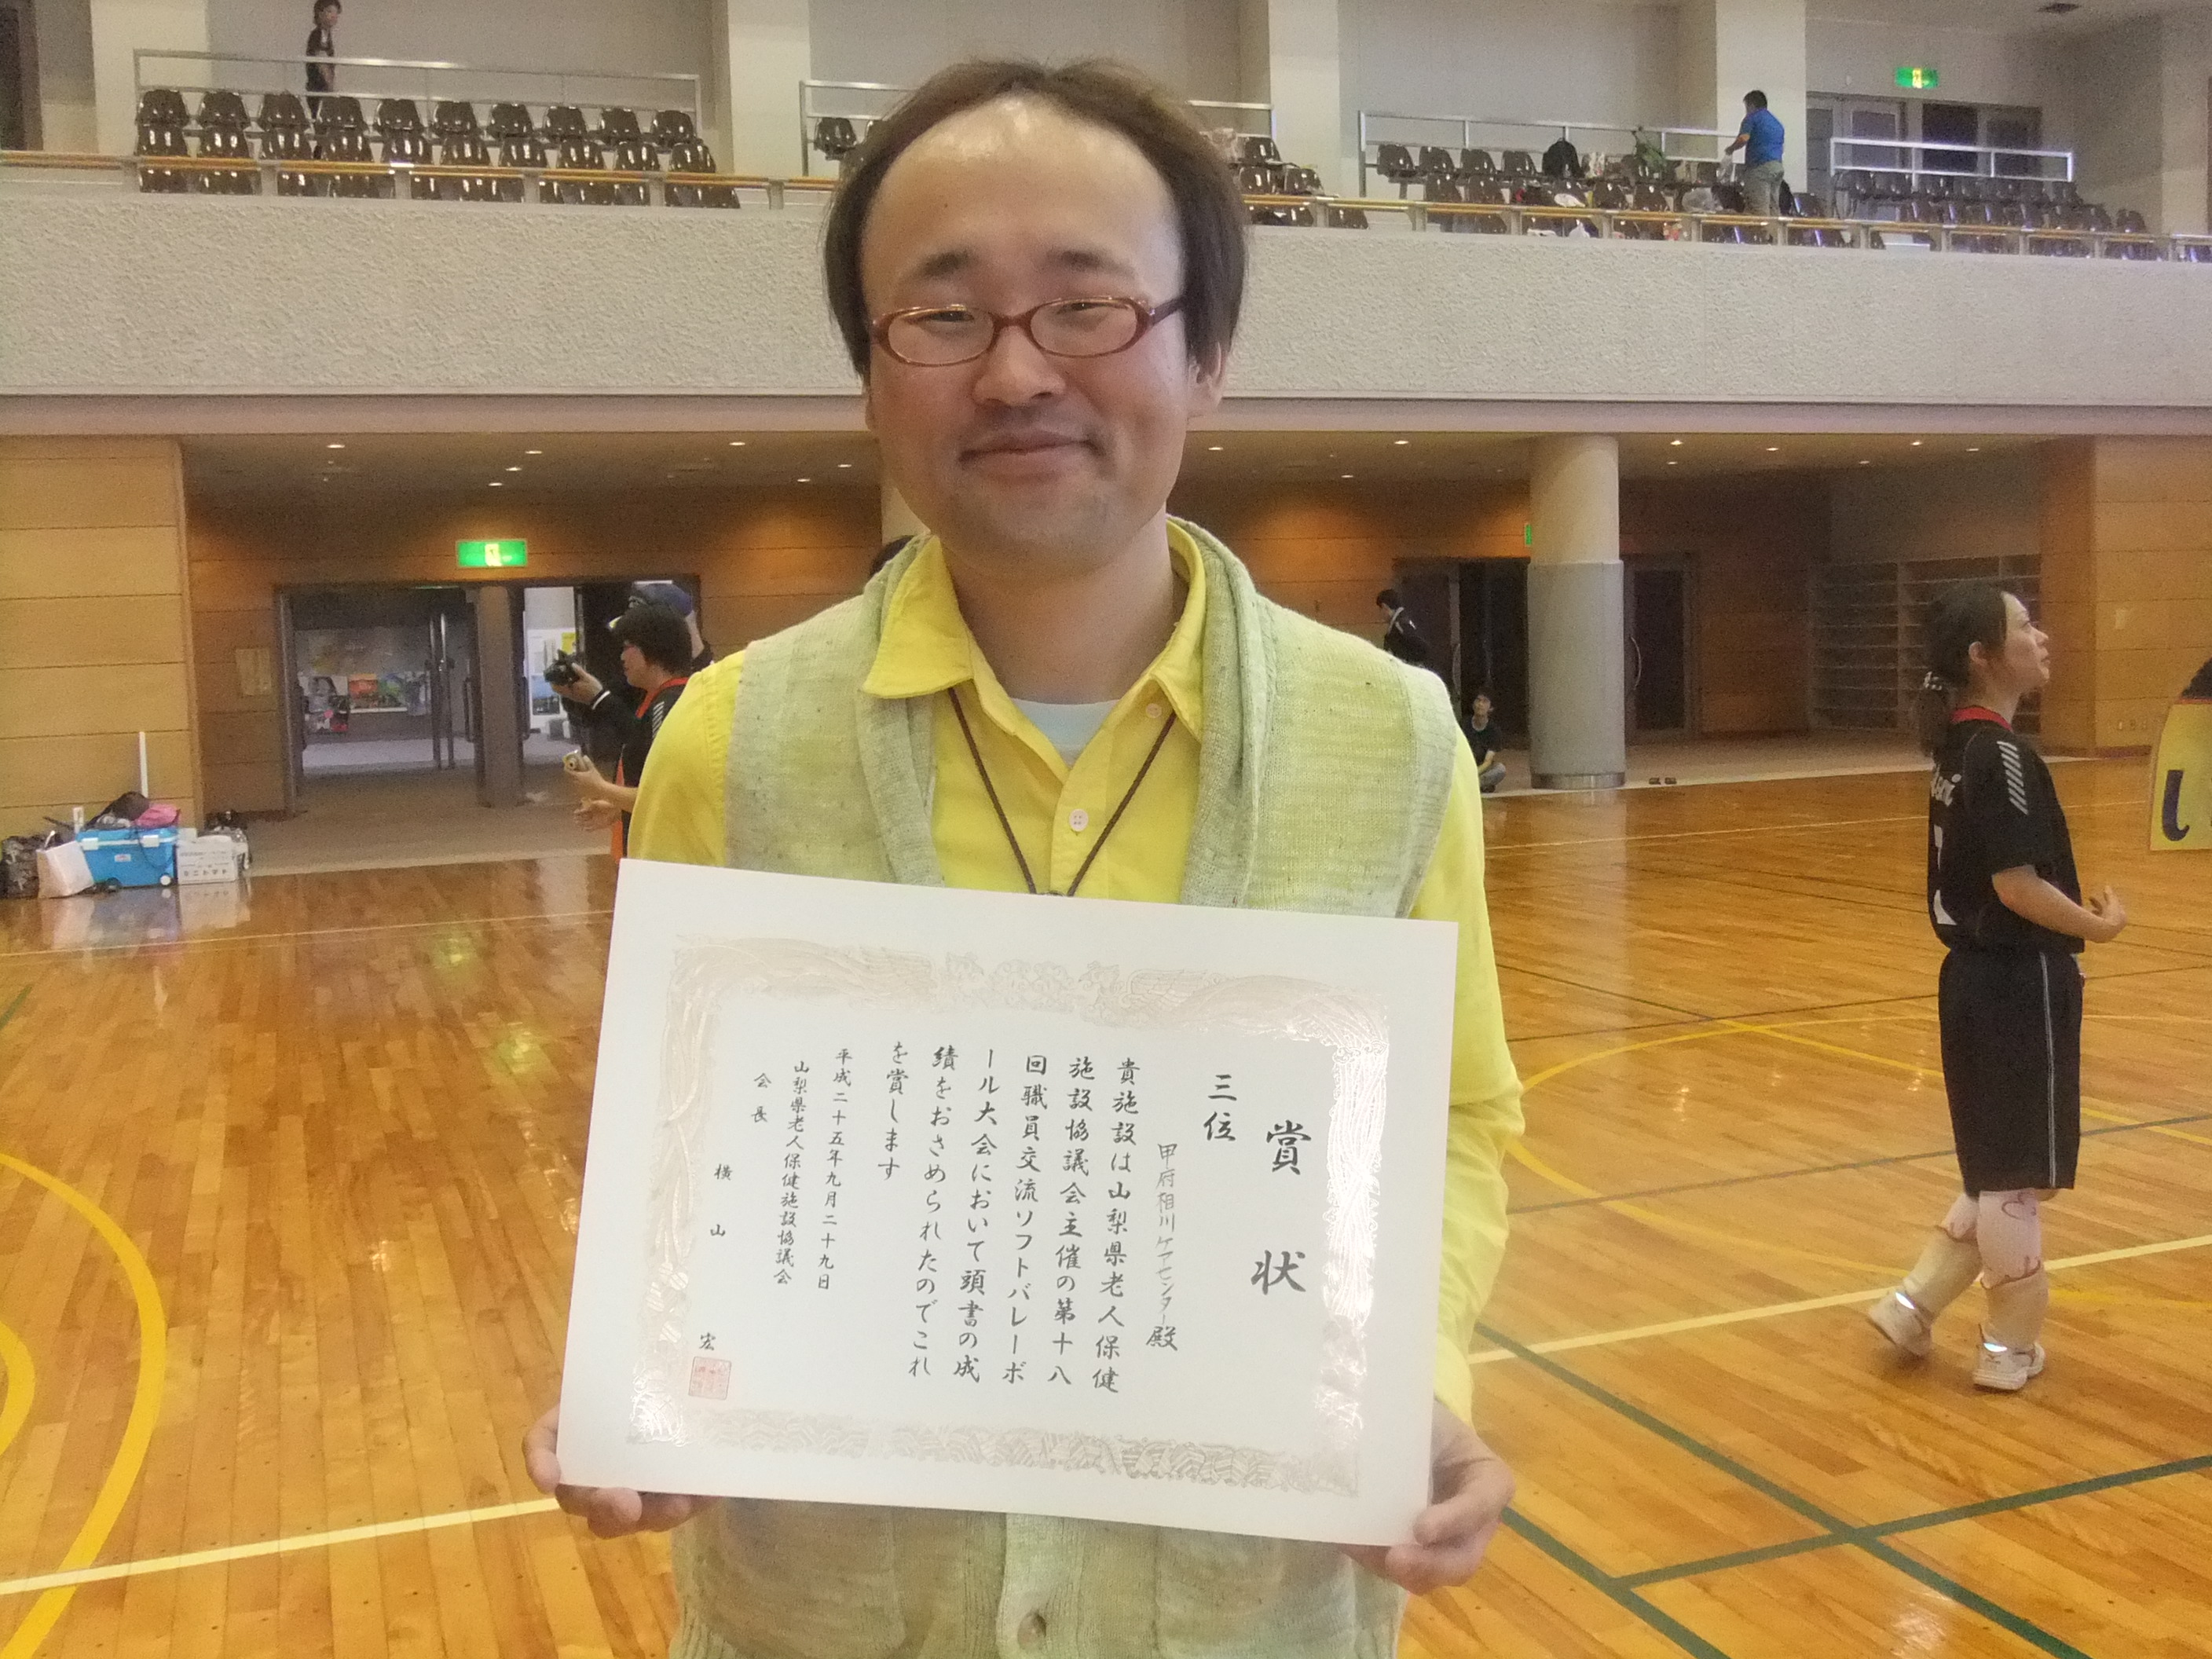 賞状
三位
甲府相川ケアセンター殿
貴施設は山梨県老人保健
施設協議会主催の第十八
回職員交流ソフトバレーボ
ール大会において頭書の成
績をおさめられたのでこれ
を賞します
平成二十五年九月二十九日
山梨県老人保健施設協議会
会長
横山宏
し